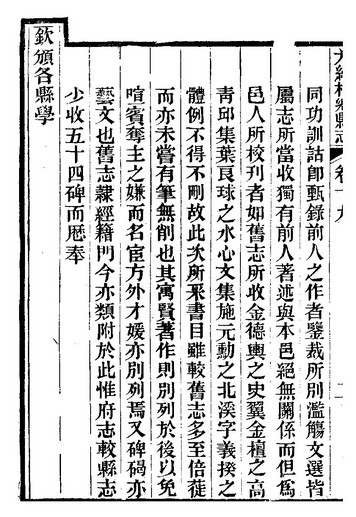 同功訓詁卽甄錄前人之作者鑒裁所別濫觴文選皆
屬志所當收獨有前人著述與本邑絕無關係而但爲
邑人所校刊者如舊志所收金德輿之史翼金檀之高
靑邱集葉良球之水心文集施元勳之北溪字義揆之
體例不得不刪故此次所采書目雖較舊志多至倍蓰
而亦未嘗有筆無削也其寓賢著作則別列於後以免
喧賓奪主之嫌而名宦方外才媛亦別列焉又碑碣亦
藝文也舊志隸經籍門今亦類附於此惟府志較縣志
少收五十四碑而厯奉
欽頒各縣學